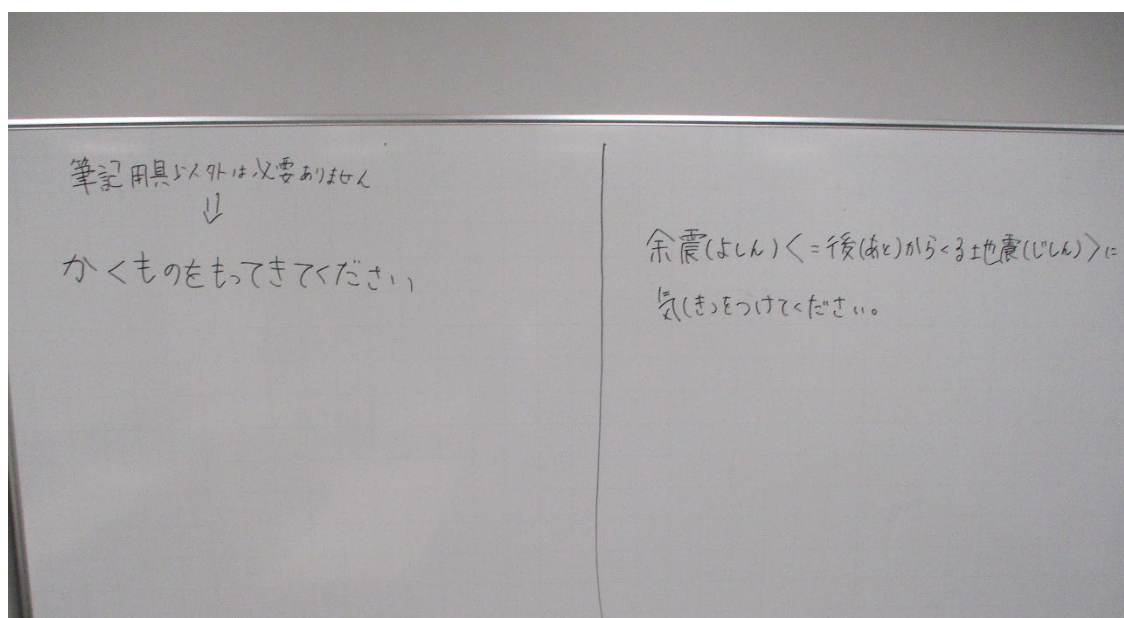 筆記用具以外は必要ありません
⇓
かくものをもってきてください
余震(よしん)〈=後(あと)からくる地震(じしん)〉に
気(き)をつけてください。